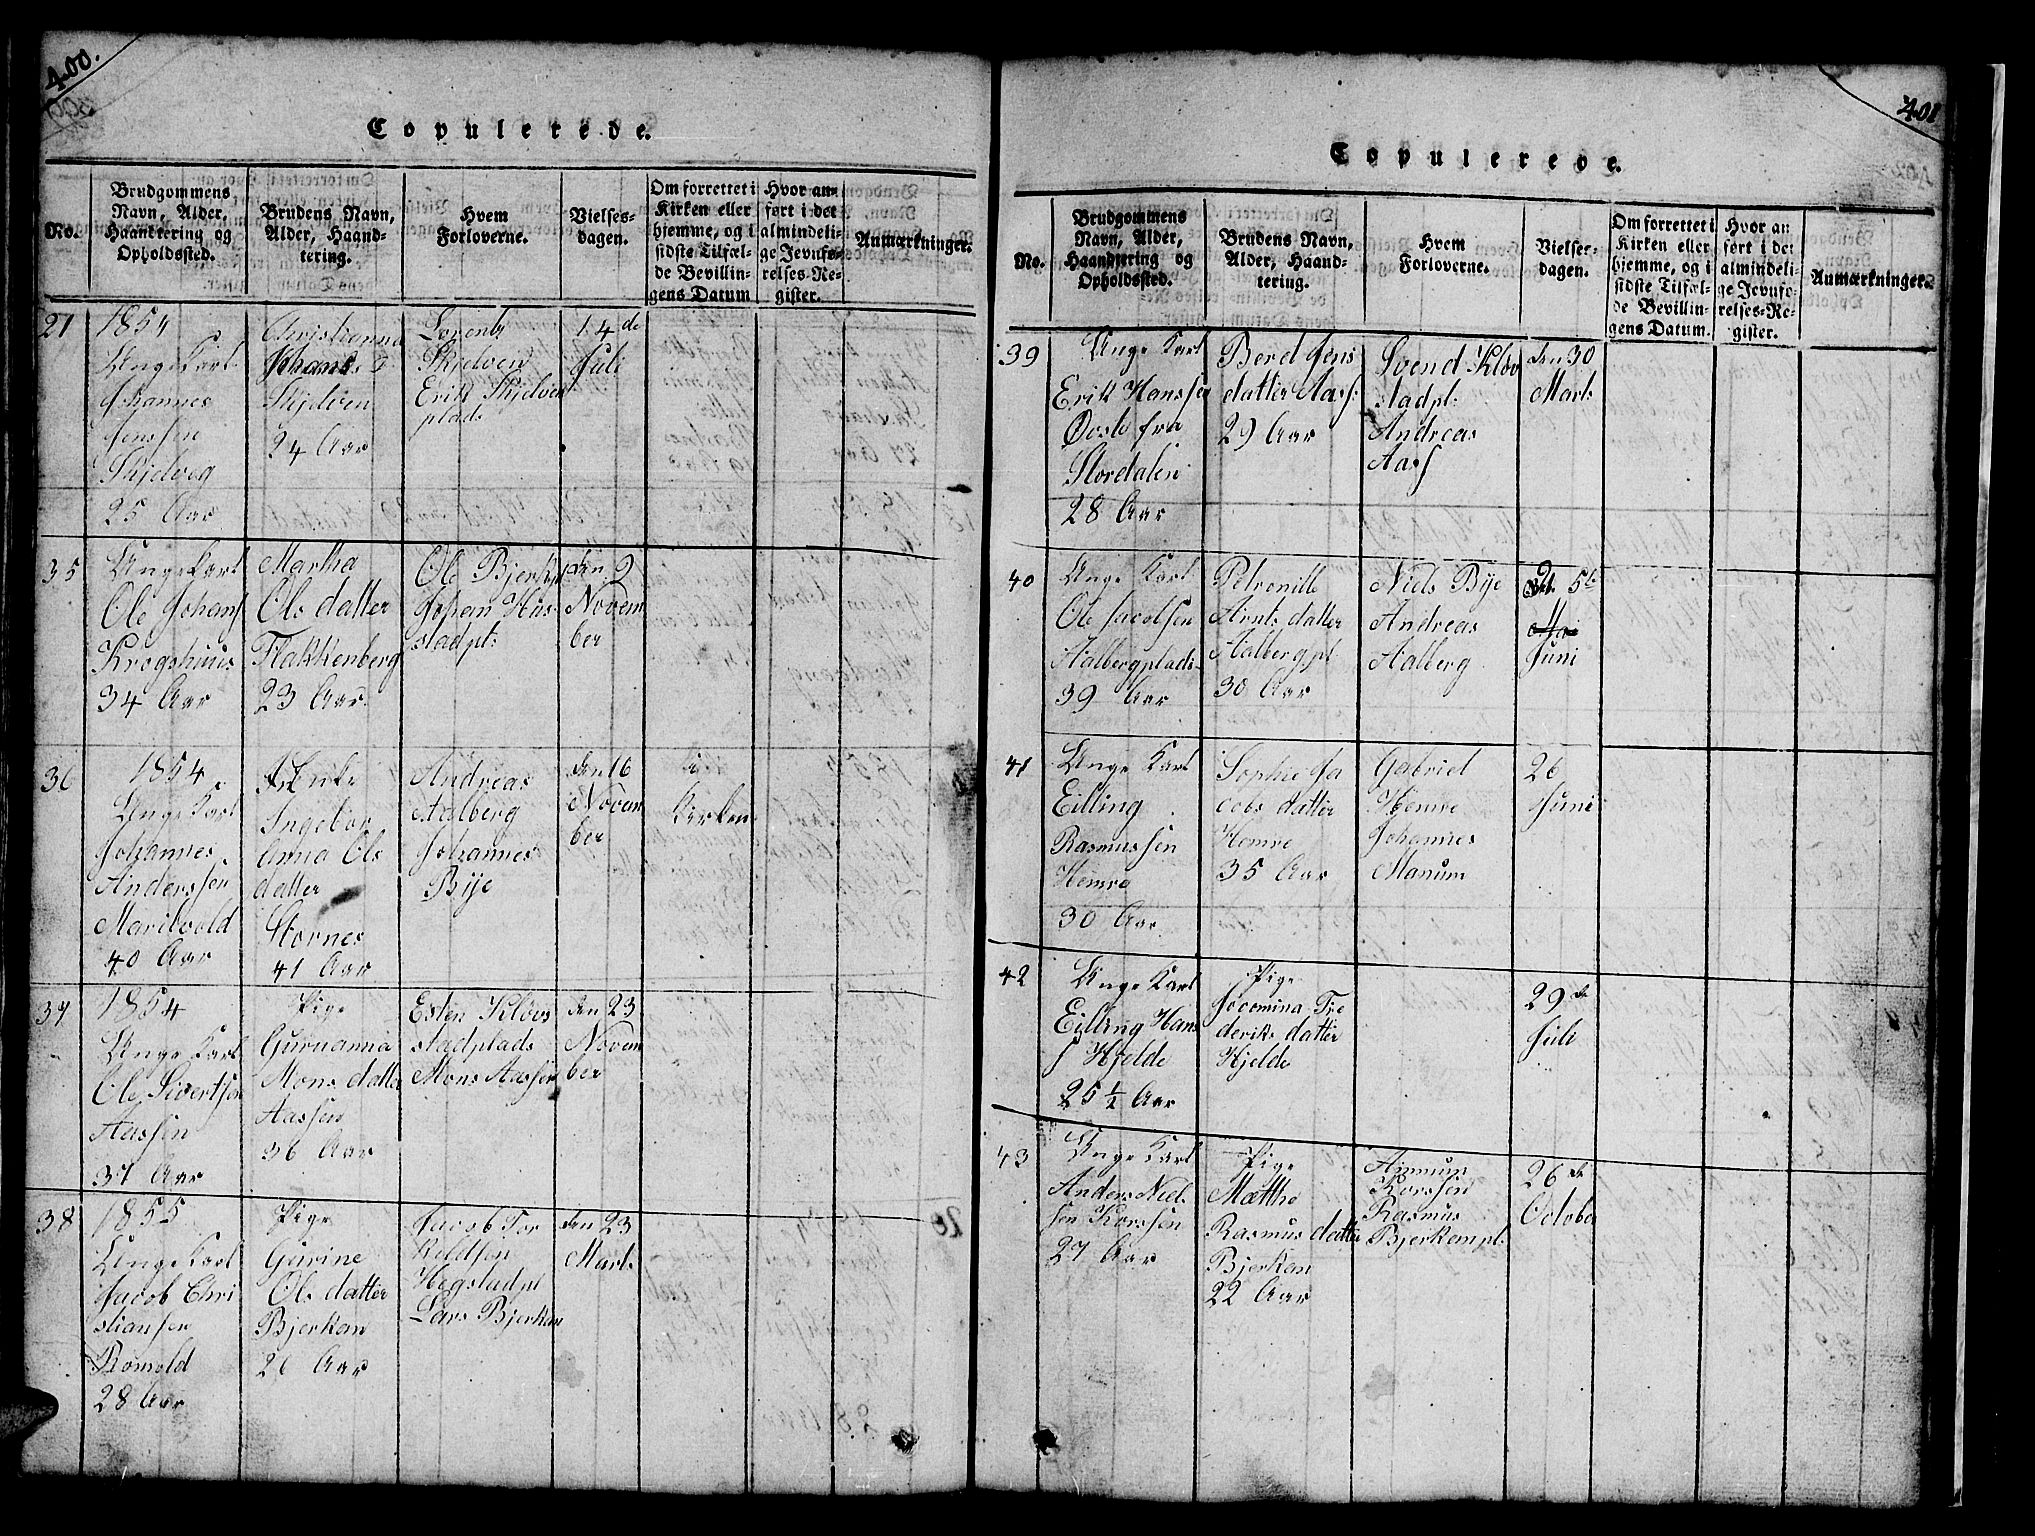 400.
Copulerede.
No.
Brudgommens
Navn, Alder,
Haandtering og
Opholdssted.
Brudens Navn,
Alder, Haand-
tering.
Hvem
Forloverne.
Vielses-
dagen.
Om forrettet i
Kirken eller
hjemme, og i
sidste Tilfæl-
de Bevillin-
gens Datum
Hvor an-
ført i det
almindeli-
ge Jevnfø-
relses-Re-
gister.
Anmærkninger.
21
1854
Unge Karl
Johannes
Jenssen
Skjelveg
25 Aar
Christianna
Johans D
Skjelven
24 Aar
Lorents
Skjelven
Erik Skjelven
plads
14 de
Juli
35
Unge Karl
Ole Johans
Krogshuus
34 Aar
Martha
Ols datter
Flakkenberg
23 Aar
Ole Bjerken
Johan Hus
stadpl:
den 2
Novem
ber
36
1854
Unge Karl
Johannes
Anderssen
Maritvold
40 Aar
Enke
Ingebor
Anna Ols
datter
Stornes
41 Aar
Andreas
Aalberg
Johannes
Bye
den 16
Novem
ber
i
Kirken
37
1854
Unge Karl
Ole Sivertsen
Aassen
37 Aar
Pige
Guruanna
Mons datter
Aassen
36 Aar
Esten Klövs
stadplads
Mons Aassen
den 23
Novem
ber
38
1855
Unge Karl
Jacob Chri
stiansen
Romold
28 Aar
Pige
Gurine
Ols datter
Bjerkan
26 Aar
Jacob Tor
keldsen
Hegstadpl
Lars Bjerkan
den 23
Marts
401
Copulerede.
No.
Brudgommens
Navn, Alder,
Haandtering og
Opholdssted.
Brudens Navn,
Alder, Haand-
tering.
Hvem
Forloverne.
Vielses-
dagen.
Om forrettet i
Kirken eller
hjemme, og i
sidste Tilfæl-
de Bevillin-
gens Datum.
Hvor an
ført i det
almindeli-
ge Jevnfø-
relses-Re-
gister.
Anmærkninger.
39
Unge Karl
Erik Hanssen
Qosle fra
Stordalen
28 Aar
Berd Jens
datter Aass:
29 Aar
Svend Klöv
stadpl:
Andreas
Aass
den 30
Marts
40
Unge Karl
Ole Jacobsen
Aalbergplads
39 Aar
Petronille
Arnts datter
Aalberg pl
30 Aar
Niels Bye
Andreas
Aalberg
5te
Mai
Juni
41
Unge Karl
Eilling
Rasmussen
Hemre
30 Aar
Sophie Ja
cobs datter
Hemre
35 Aar
Gabriel
Hemre
Johannes
Manum
26
Juni
42
Unge Karl
Eilling Hans
s Hjelde
25 1/2 Aar
Pige
Jocomina Fre
deriks datter
Hjelde
29 de
Juli
43
Unge Karl
Anders Niel
sen Korssen
27 Aar
Pige
Mætthe
Rasmus datter
Bjerkan
22 Aar
Korssen
Rasmus
Bjerkempl.
26 de
October